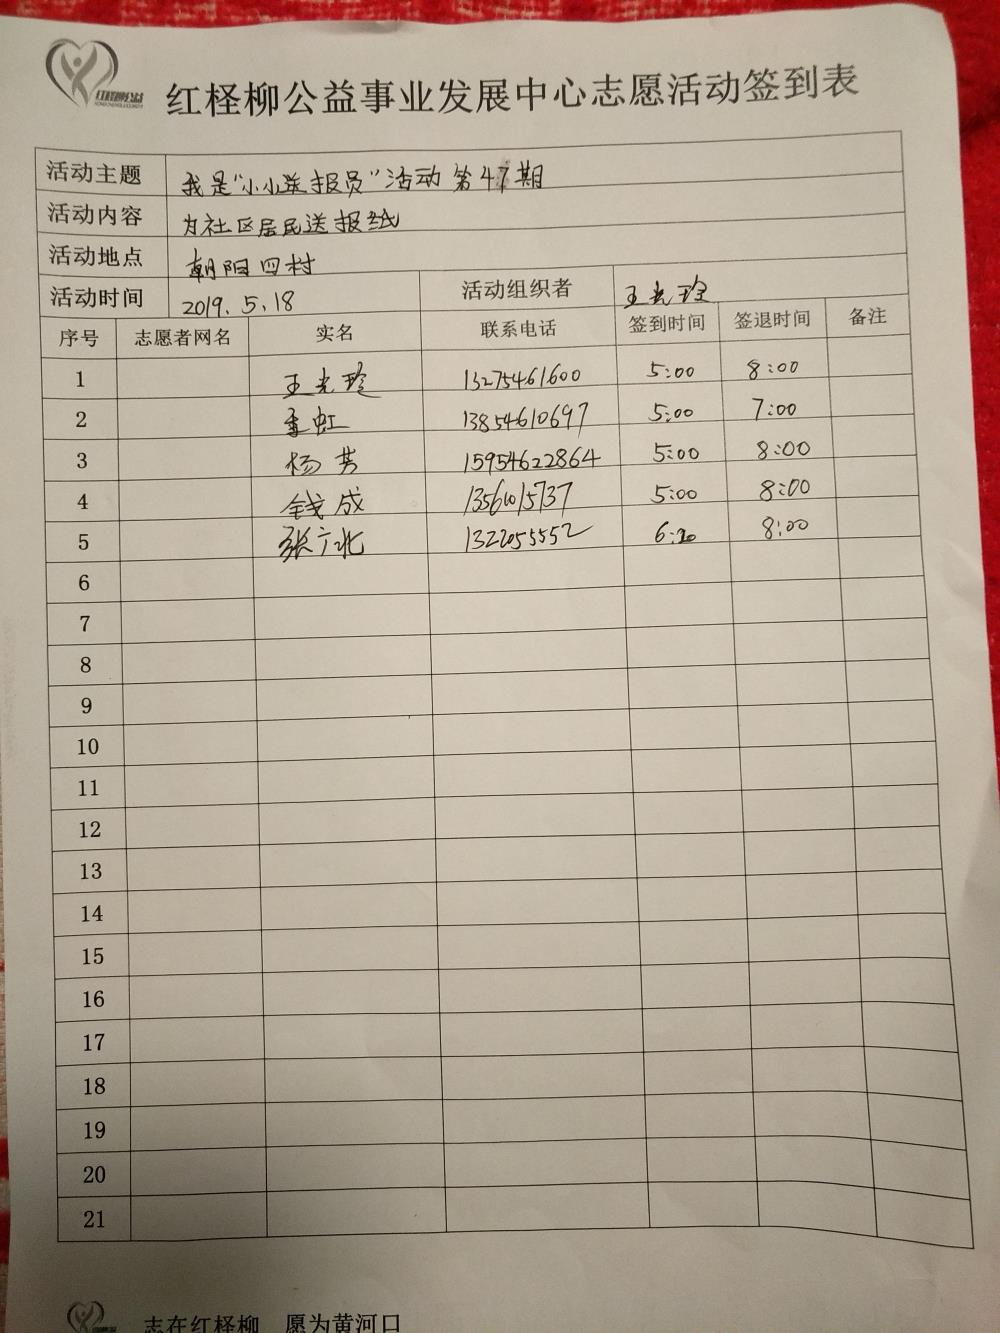 红柽柳公益
红柽柳公益事业发展中心志愿活动签到表
活动主题 我是“小小送报员”活动 第47期
活动内容 为社区居民送报纸
活动地点 朝阳四村
活动时间 2019.5.18 活动组织者 王光珍
序号 志愿者网名 实名 联系电话 签到时间 签退时间 备注
1 王光珍 13275461600 5:00 8:00
2 季虹 13854610697 5:00 7:00
3 杨芳 15954622864 5:00 8:00
4 钱成 5:00 8:00
5 张广北 6:20 8:00
6
7
8
9
10
11
12
13
14
15
16
17
18
19
20
21
志在红柽柳 愿为黄河口